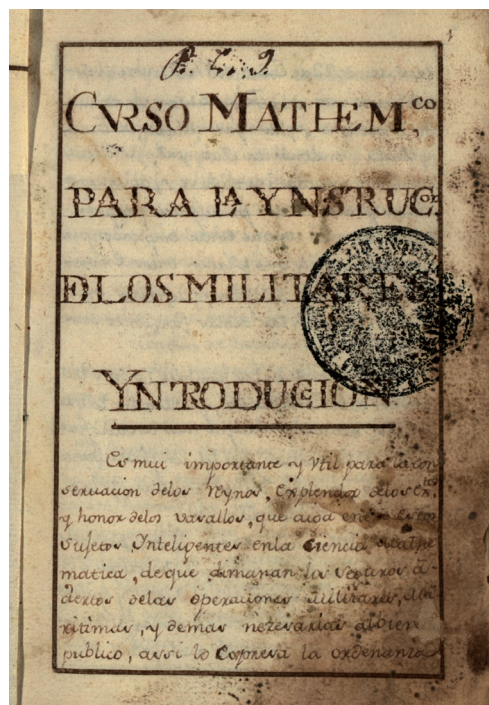 CVRSO MATHEM,co
PARA LA YNSTRUCon
DE LOS MILITARES
YNTRODUCCION
Es mui importante y Vtil para la con
seruacion delos Reynos, Explendor delos
y honor delos vasallos, que aia en
Sujetos Ynteligentes enla Ciencia Mathe
matica, de que dimanan los Seguros a
ciertos delas operaciones Militares, Ma
ritimas, y demas nezesarias albien
publico, assi lo Espresa la ordenanza